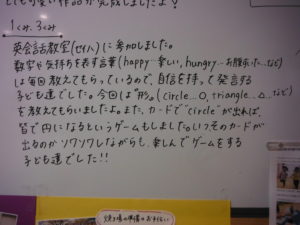 とても可愛い作品が完成しましたよ!
1くみ、3くみ
英会話教室(セイハ)に参加しました。
数字や気持ちを表す言葉(happy…楽しい, hungry…お腹すいた…など)
は毎回教えてもらっているので、自信を持って発言する
子ども達でした。今回は"形。(circle…○, triangle…△…など)
を教えてもらいましたよ。また、カードで"circle"が出れば、
皆で円になるというゲームもしました。いつそのカードが
出るのかソワソワしながらも、楽しんでゲームをする
子ども達でした!!
焼き場の準備のお手伝い